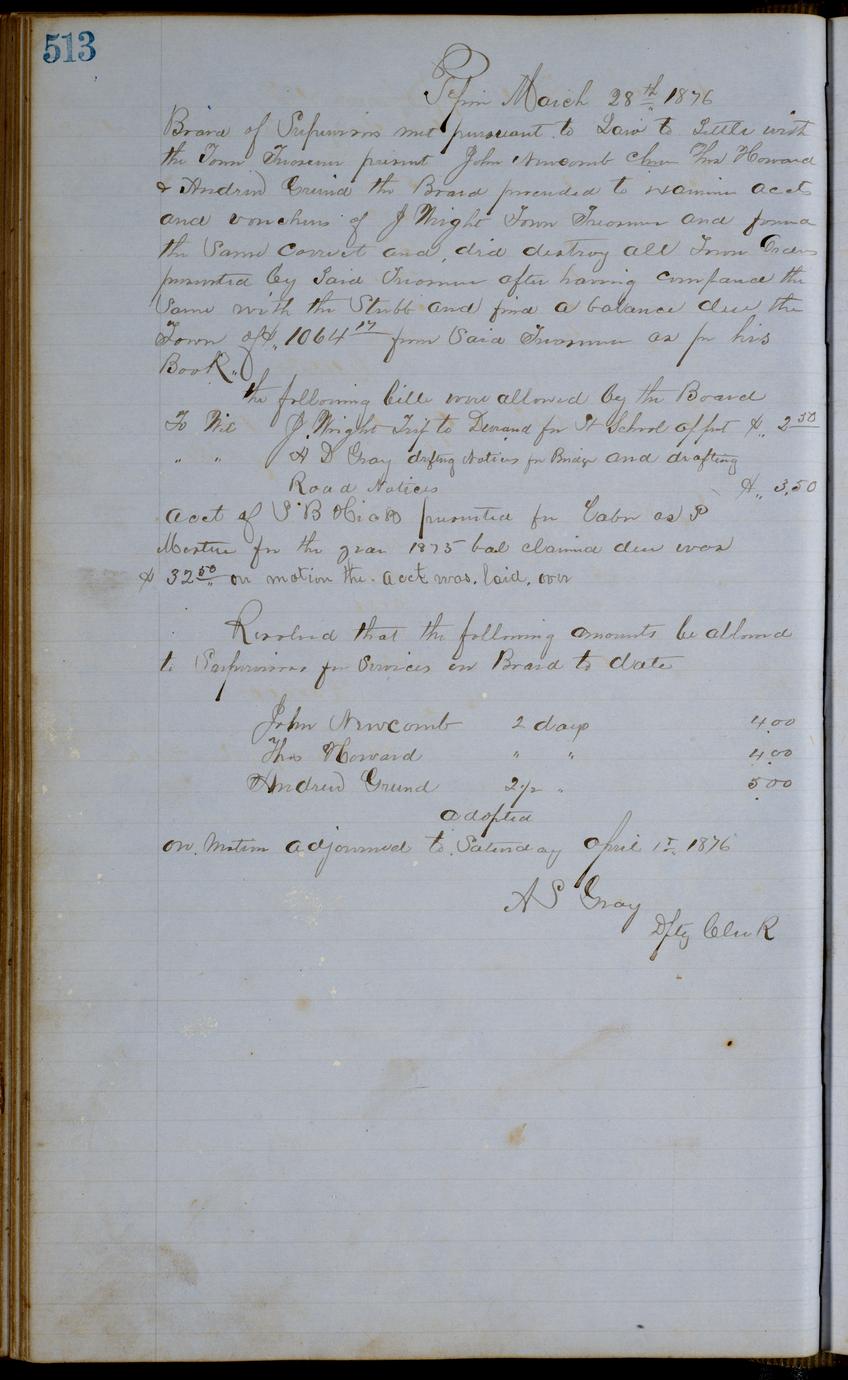 513
Pepin March 28th 1876
Board of Supervisors met pursuant to Law to Settle with
the Town Treasurer present John Newcomb Chm Thos Howard
& Andrew Grund the Board proceeded to examine accts
and vouchers of J Wright Town Treasurer and found
the Same Correct and did destroy all Town Orders
presented by Said Treasurer after having compared the
Same with the Stubb and find a balance due the
Town of $ 1064 17 from Said Treasurer as per his
Book
the following bills were allowed by the Board
To Wit J. Wright Trip to Durand for School $ 2 50
" " A D Gray drfting Notices for Bridge and drafting
Road Notices $ 3.50
acct of S B presented for Labor as P
Master for the year 1875 bal claimed due was
$ 32 50 on motion the acct was laid over
Resolved that the following amounts be allowed
to Supervisors for Services on Board to date
John Newcomb 2 days 4.00
Thos Howard " " 4.00
Andrew Grund 2½ " 5.00
adopted
on Motion adjourned to Saturday April 1st 1876
A S Gray
Dpty Clerk